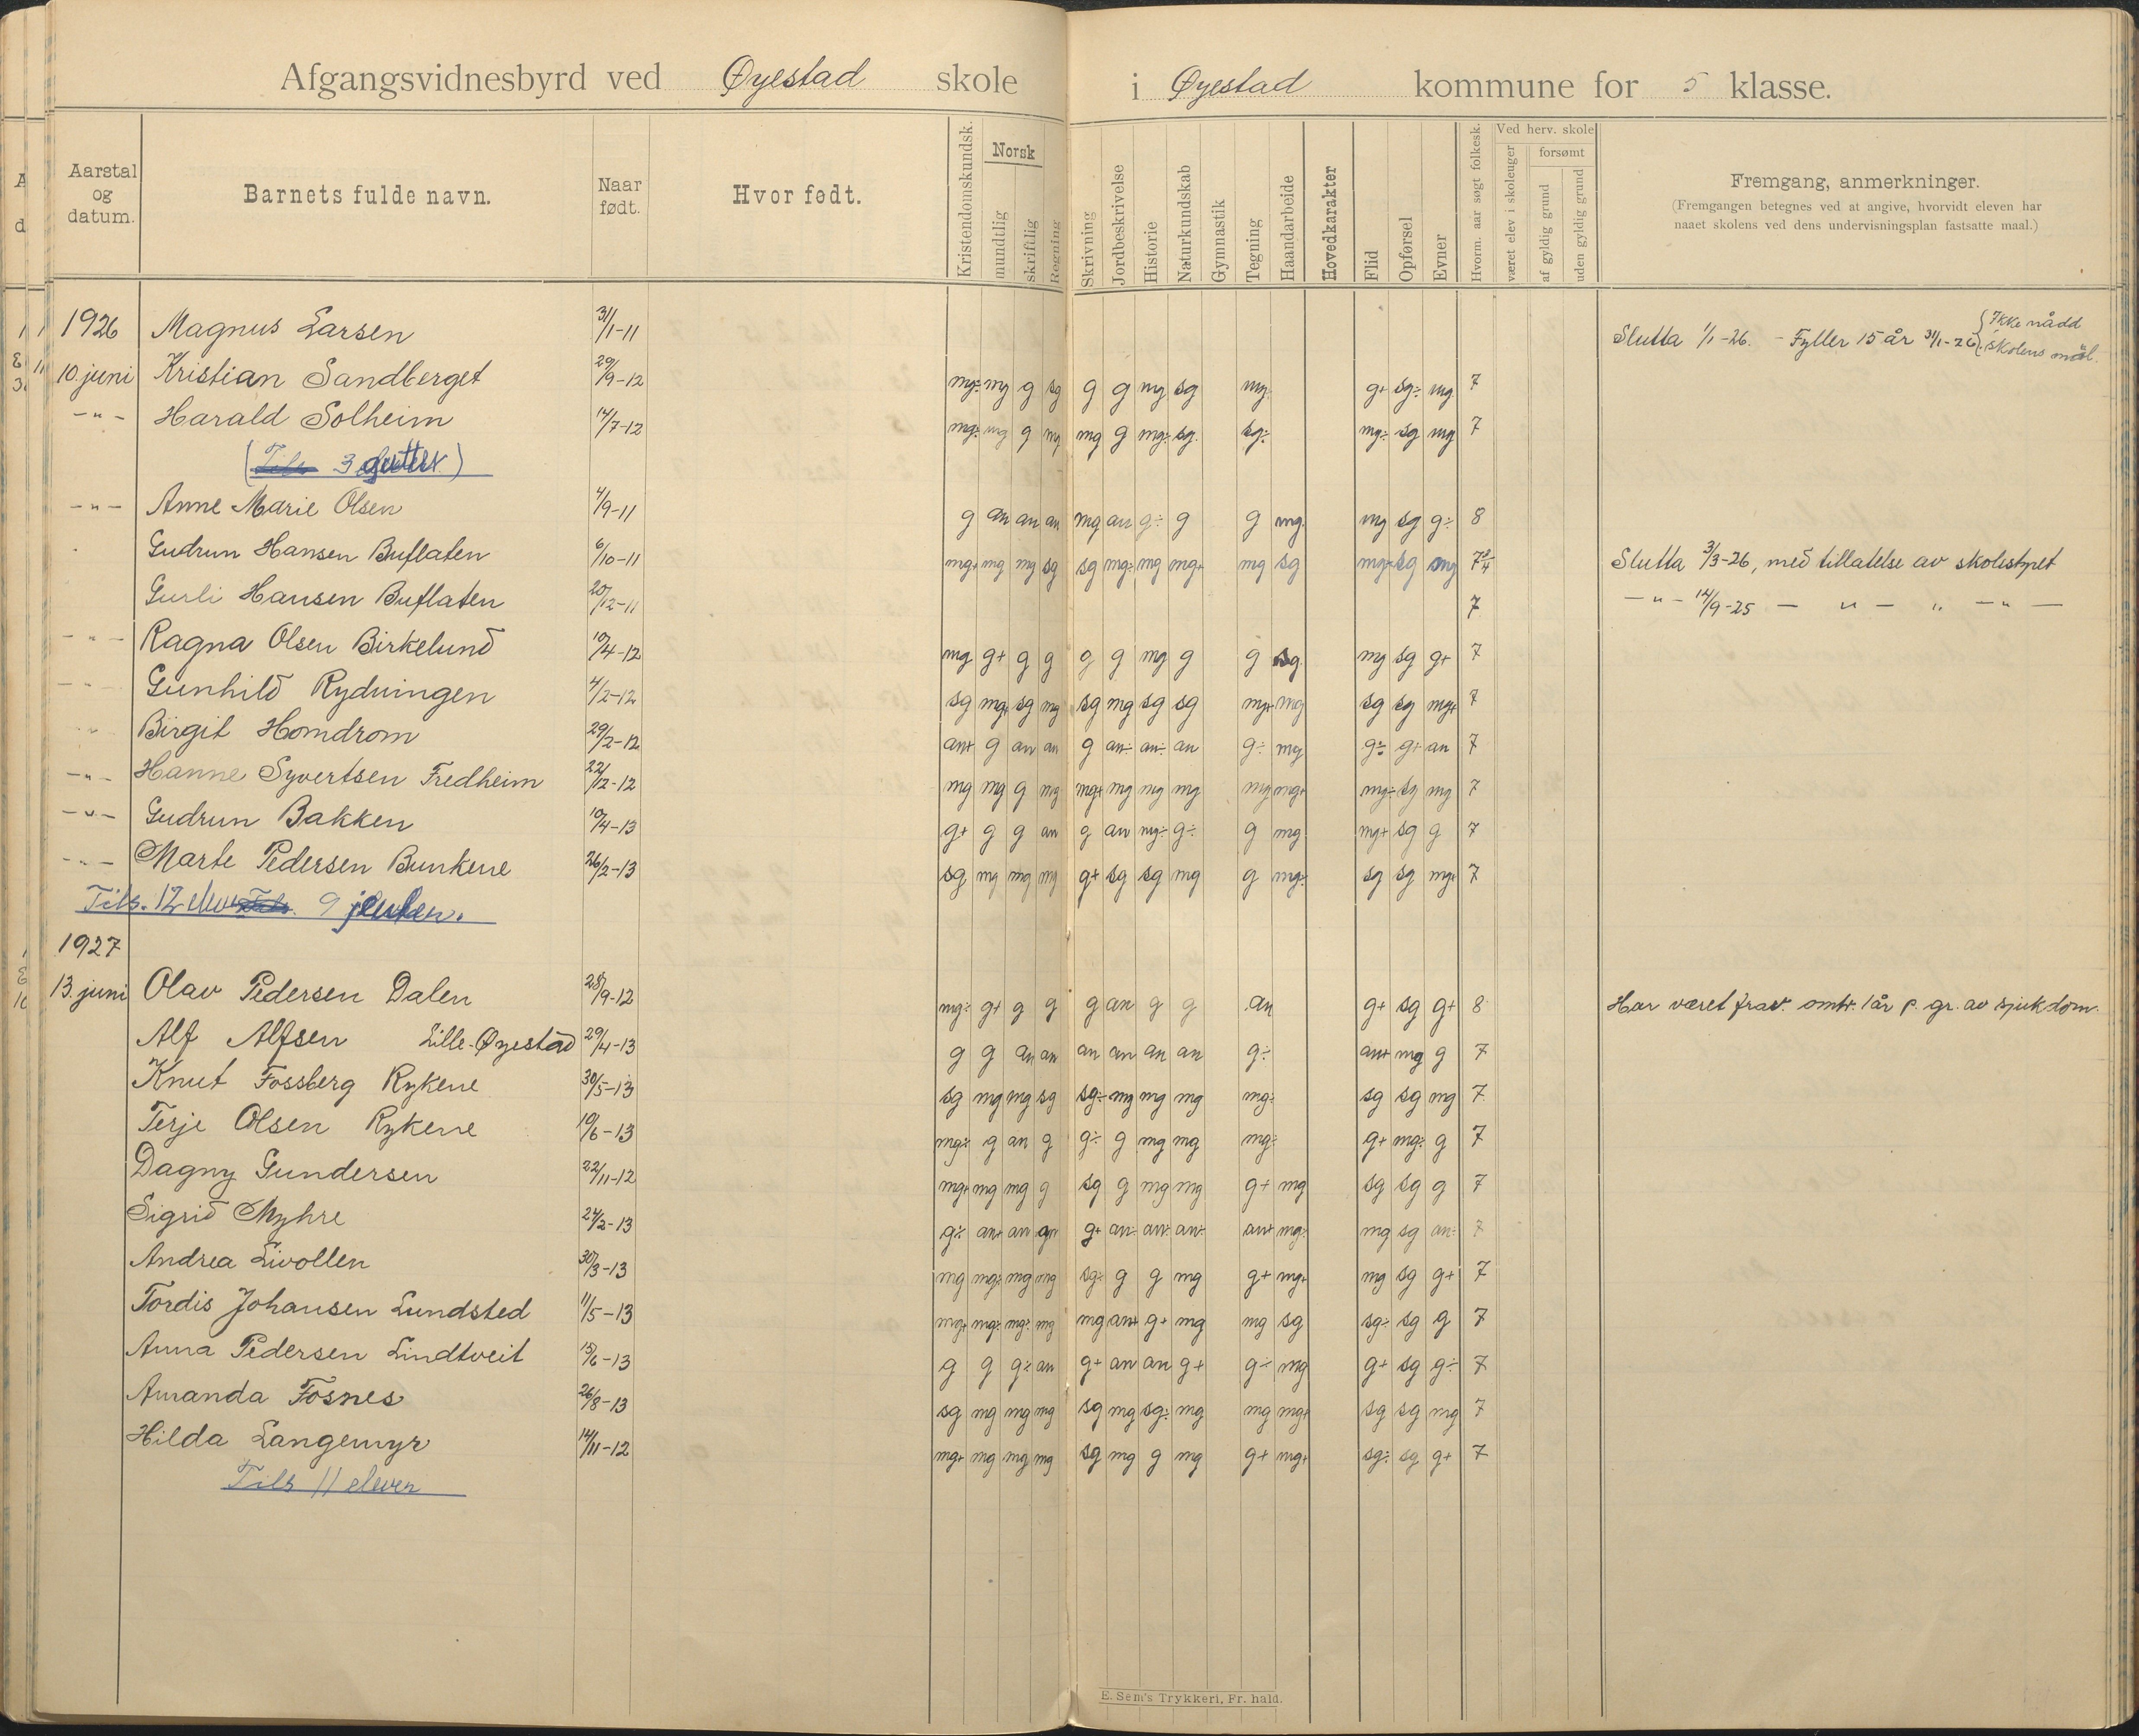 Afgangsvidnesbyrd ved Øyestad skole i Øyestad kommune for 5 klasse.
Aarstal og datum.
Barnets fulde navn.
Naar født.
Hvor født.
Kristendomskundsk.
Norsk
mundtlig
skriftlig
Regning
Skrivning
Jordbeskrivelse
Historie
Naturkundskab
Gymnastik
Tegning
Haandarbeide
Hovedkarakter
Flid
Opførsel
Evner
Hvorm. aar søgt folkesk.
Ved herv. skole
været elev i skoleuger
forsømt
af gyldig grund
uden gyldig grund
Fremgang, anmerkninger.
(Fremgangen betegnes ved at angive, hvorvidt eleven har
naaet skolens ved dens undervisningsplan fastsatte maal.)
1926 Magnus Larsen 31/1-11 Slutta 1/1-26. - Fyller 15 år 31/1-26 {Ikke nådd skolens mål.
10. juni Kristian Sandberget 29/9-12 mg÷ mg g sg g g mg sg mg g+ sg÷ mg 7
-"- Harald Solheim 14/7-12 mg÷ mg g mg mg g mg÷ sg sg÷ mg÷ sg mg 7
(Tils 3 gutter)
-"- Anne Marie Olsen 4/9-11 g an an an mg an g÷ g g mg mg sg g÷ 8
Gudrun Hansen Buflaten 6/10-11 mg+ mg mg sg sg mg÷ mg mg+ mg sg mg+ sg mg 7 Slutta 3/3-26, med tillatelse av skolestyret
Gurli Hansen Buflaten 20/12-11 7 -"- 14/9-25 - " - " - " -
-"- Ragna Olsen Birkelund 10/4-12 mg g+ g g g g mg g g sg mg sg g+ 7
-"- Gunhild Rydningen 4/2-12 sg mg+ sg mg sg mg sg sg mg+ mg sg sg mg+ 7
-"- Birgit Homdrom 29/2-12 an+ g an an g an÷ an÷ an g÷ mg g÷ g+ an 7
-"- Hanne Syvertsen Fredheim 22/12-12 mg mg g mg mg+ mg mg mg mg mg+ mg÷ sg mg 7
-"- Gudrun Bakken 10/4-13 g+ g g an g an mg÷ g÷ g mg mg+ sg g 7
-"- Marte Pedersen Bunkene 26/2-13 sg mg mg mg g+ sg sg mg g mg÷ sg sg mg+ 7
Tils. 12 elever Tils. 9 jenter.
1927
13. juni Olav Pedersen Dalen 28/9-12 mg÷ g+ g g g an g g an g+ sg g+ 8 Har været frav. omtr. 1 år p. gr. av sjukdom.
Alf Alfsen Lille-Øyestad 29/4-13 g g an an an an an an g÷ an+ mg g 7
Knut Fossberg Rykene 30/5-13 sg mg mg sg sg÷ mg mg mg mg÷ sg sg mg 7
Terje Olsen Rykene 10/6-13 mg÷ g an g g÷ g mg mg mg÷ g+ mg÷ g 7
Dagny Gundersen 22/11-12 mg+ mg mg g sg g mg mg g+ mg sg sg g 7
Sigrid Myhre 24/2-13 g÷ an+ an g÷ g+ an÷ an÷ an÷ an+ mg÷ mg sg an÷ 7
Andrea Livollen 30/3-13 mg mg÷ mg mg sg÷ g g mg g+ mg+ mg sg g+ 7
Tordis Johansen Lundsted 11/5-13 mg+ mg÷ mg÷ mg mg an+ g+ mg mg sg sg÷ sg g 7
Anna Pedersen Lindtveit 15/6-13 g g g÷ an g+ an an g+ g÷ mg g+ sg g÷ 7
Amanda Fosnes 26/8-13 sg mg mg mg sg mg sg÷ mg mg mg+ sg sg mg 7
Hilda Langemyr 14/11-12 mg+ mg mg mg sg mg g mg g+ mg+ sg÷ sg g+ 7
Tils 11 elever
E. Sem's Trykkeri, Fr. hald.